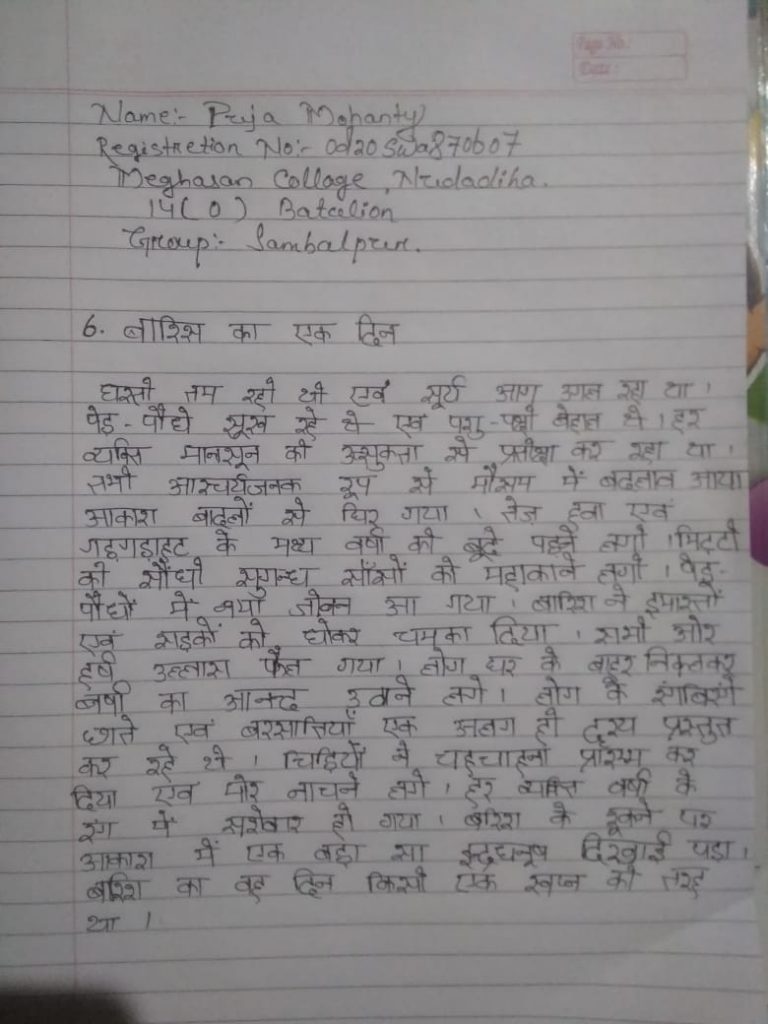 Page No.:
Date:
Name:- Puja Mohanty
Registretion No:- Od20Swa870607
Meghasan Collage, Nudadiha.
14(O) Batalion
Group:- Sambalpur.
6. बारिश का एक दिन
धरती तप रही थी एवं सूर्य आग उगल रहा था।
पेड़-पौधे सूख रहे थे एवं पशु-पक्षी बेहाल थे। हर
व्यक्ति मानसून की उत्सुकता से प्रतीक्षा कर रहा था।
तभी आश्चर्यजनक रूप से मौसम में बदलाव आया
आकाश बादलों से घिर गया। तेज़ हवा एवं
गड़गड़ाहट के मध्य वर्षा की बूंदे पड़ने लगी। मिट्टी
की सौंधी सुगन्ध साँसों को महाकाने लगी। पेड़-
पौधों में नया जीवन आ गया। बारिश ने इमारतों
एवं सड़कों को धोकर चमका दिया। सभी ओर
हर्ष उल्लास फैल गया। लोग घर के बाहर निकलकर
वर्षा का आनन्द उठाने लगे। लोग के रंगबिरंगे
छाते एवं बरसातियाँ एक अलग ही दृश्य प्रस्तुत
कर रहे थे। चिड़ियों ने चहचाहना प्रारम्भ कर
दिया एवं मोर नाचने लगे। हर व्यक्ति वर्षा के
रंग में सरोबार हो गया। बारिश के रूकने पर
आकाश में एक बड़ा सा इन्द्रधनुष दिखाई पड़ा।
बारिश का वह दिन किसी एक स्वप्न की तरह
था।